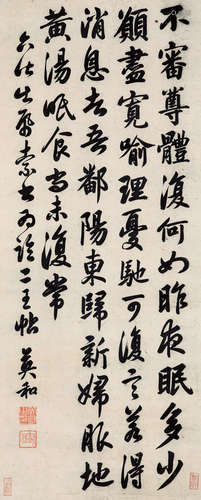 不審尊體復何如昨夜眠多少
願盡寬喻理憂馳可復言若得
消息者吾鄱陽東歸新婦服地
黃湯眠食尚未復常
二王帖英和